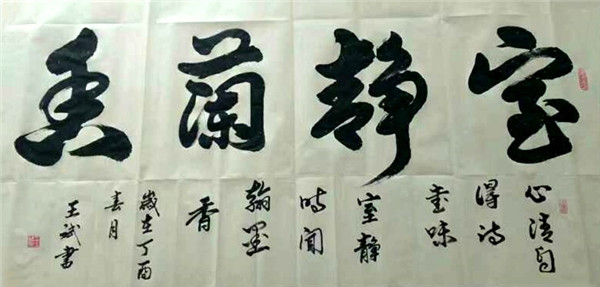 室静蘭香
心清自
得诗
書味
室静
時闻
翰墨
香
歲在丁酉
春月
王斌書